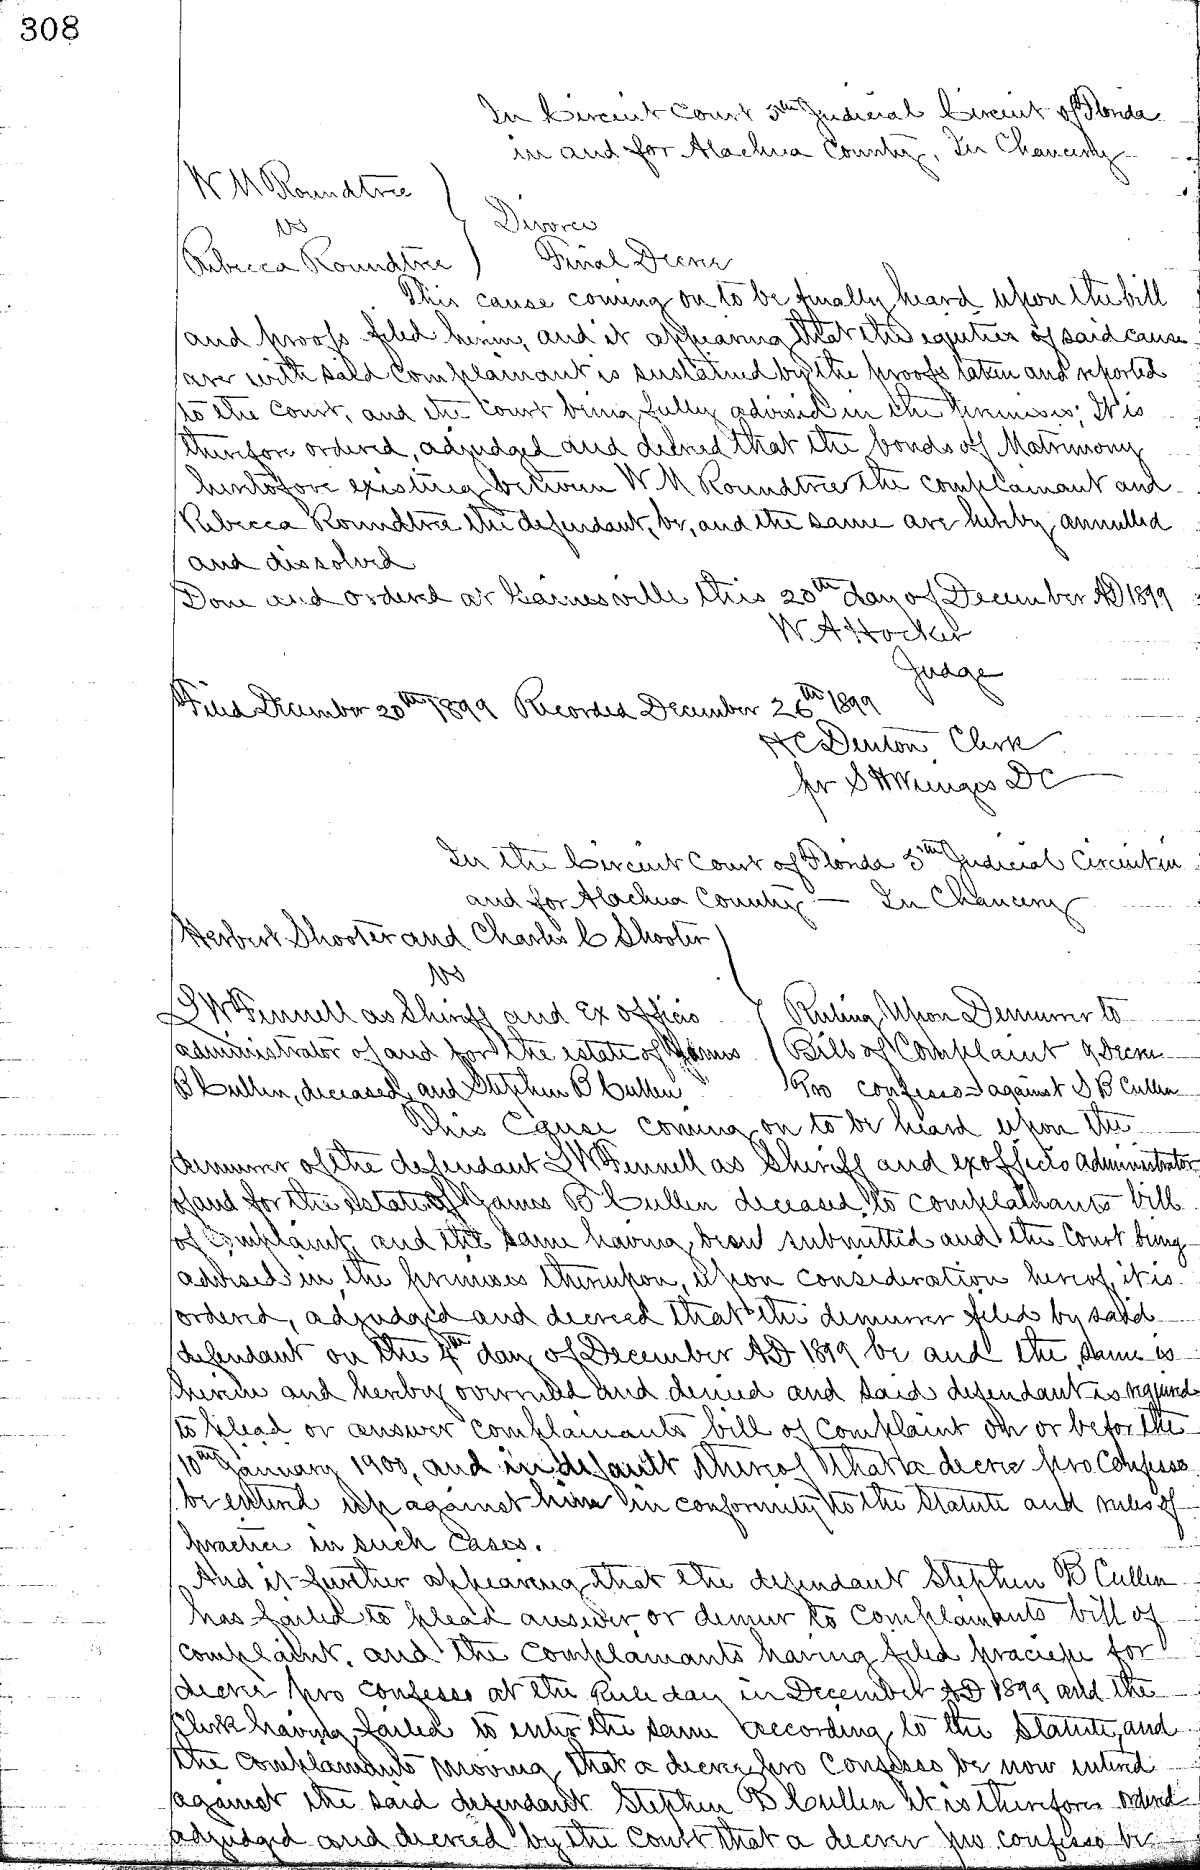 308
In Circuit Court 5th Judicial Circuit of Florida
in and for Alachua County, In Chancery
W M Roundtree
vs
Rebecca Roundtree
Divorce
Final Decree
This cause coming on to be finally heard upon the bill
and proofs filed herein, and it appearing that the equities of said cause
are with said complainant is sustained by the proofs taken and reported
to the Court, and the Court being fully advised in the premises; It is
therefore ordered, adjudged and decreed that the bonds of Matrimony
heretofore existing between W M Roundtree the complainant and
Rebecca Roundtree the defendant, be, and the same are hereby annulled
and dissolved
Done and ordered at Gainesville this 20th day of December AD 1899
W. A Hocker
Judge
Filed December 20th 1899 Recorded December 26th 1899
H C Denton Clerk
pr S H Wienges DC
In the Circuit Court of Florida 5th Judicial Circuit in
and for Alachua County — In Chancery
Herbert Shooter and Charles C Shooter
vs
L W Fennell as Sheriff and Ex officio
administrator of and for the estate of James
B Cullen, deceased, and Stephen B Cullen
Ruling Upon Demurrer to
Bill of Complaint & Decree
Pro confesso against S B Cullen
This Cause coming on to be heard upon the
demurrer of the defendant L W Fennell as Sheriff and ex officio administrator
of and for the estate of James B Cullen deceased, to complainants bill
of complaint, and the same having been submitted and the Court being
advised in the premises thereupon, upon consideration hereof, it is
ordered, adjudged and decreed that the demurrer filed by said
defendant on the 4th day of December AD 1899 be and the same is
herein and hereby overruled and denied and said defendant is required
to plead or answer complainants bill of complaint on or before the
10th January 1900, and in default thereof that a decree pro Confesso
be entered up against him in conformity to the Statute and rules of
practice in such cases.
And it further appearing that the defendant Stephen B Cullen
has failed to plead answer or demur to Complainants bill of
complaint, and the Complainants having filed praciepe for
decree pro confesso at the Rule day in December AD 1899 and the
Clerk having failed to enter the same according to the Statute, and
the complainants moving that a decree pro Confesso be now entered
against the said defendant Stephen B Cullen it is therefore ordered
adjudged and decreed by the Court that a decree pro confesso be